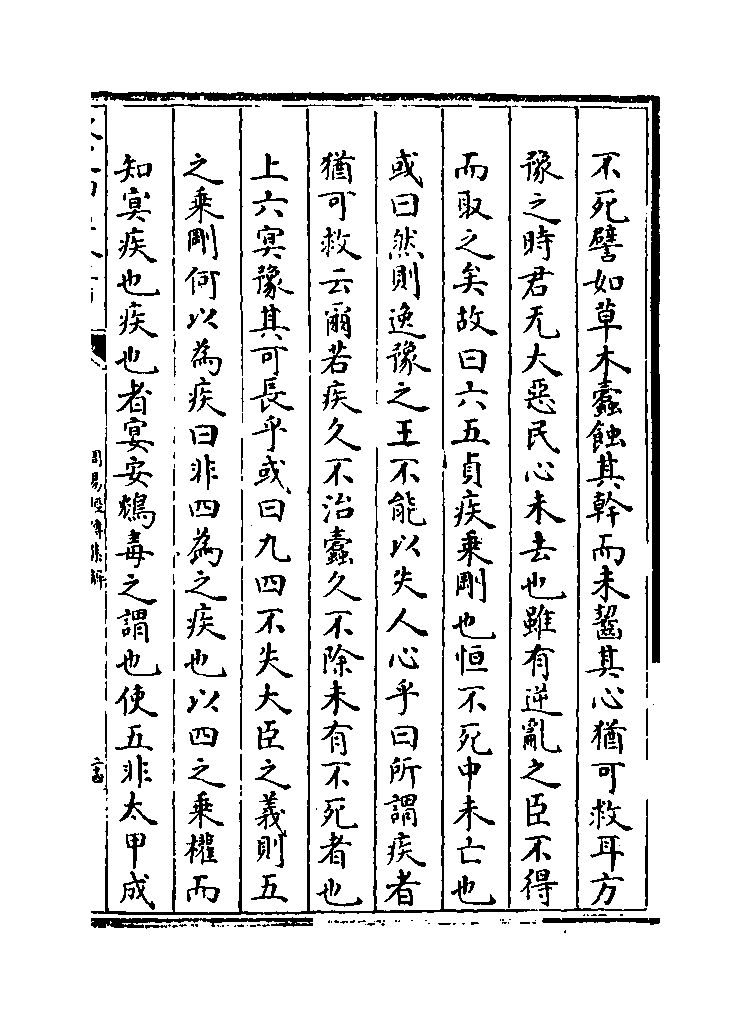 不死譬如草木蠧蝕其幹而未齧其心猶可救耳方
豫之時君无大惡民心未去也雖有逆亂之臣不得
而取之矣故曰六五貞疾乗剛也恒不死中未亡也
或曰然則逸豫之王不能以失人心乎曰所謂疾者
猶可救云爾若疾久不治蠧久不除未有不死者也
上六冥豫其可長乎或曰九四不失大臣之義則五
之乗剛何以為疾曰非四為之疾也以四之乗權而
知寘疾也疾也者宴安鴆毒之謂也使五非太甲成
周易經傳集解